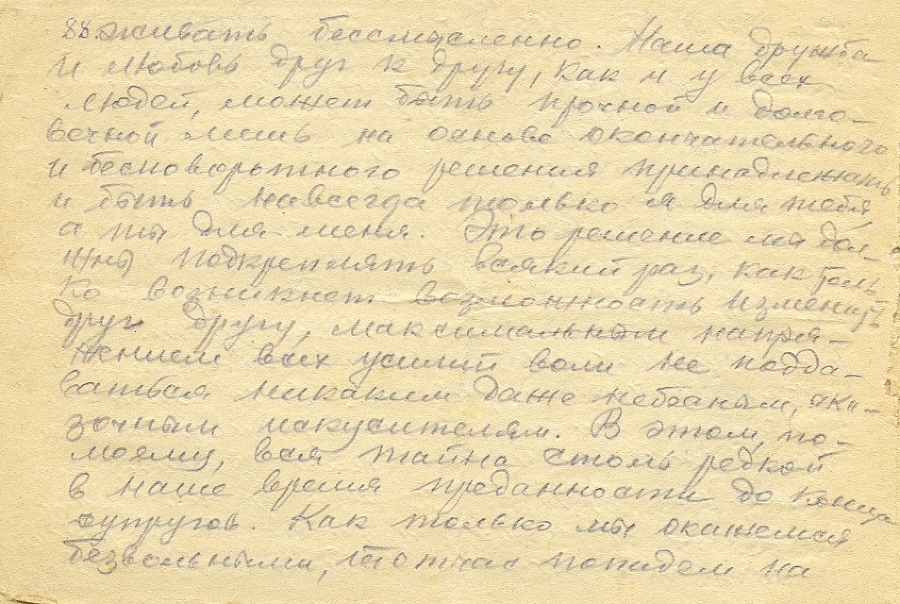 88. живать бессмысленно. Наша дружба
и любовь друг к другу, как и у всех
людей, может быть прочной и долго-
вечной лишь на основе окончательного
и бесповоротного решения принадлежать
и быть навсегда только я для тебя,
а ты для меня. Это решение мы дол-
жны подкреплять всякий раз, как толь
ко возникнет возможность изменить
друг другу, максимальным напря-
жением всех усилий воли не подда-
ваться никаким даже небесным, ска-
зочным искусителям. В этом, по-
моему, вся тайна столь редкой
в наше время преданности до конца
супругов. Как только мы окажемся
безвольными, тотчас попадем на